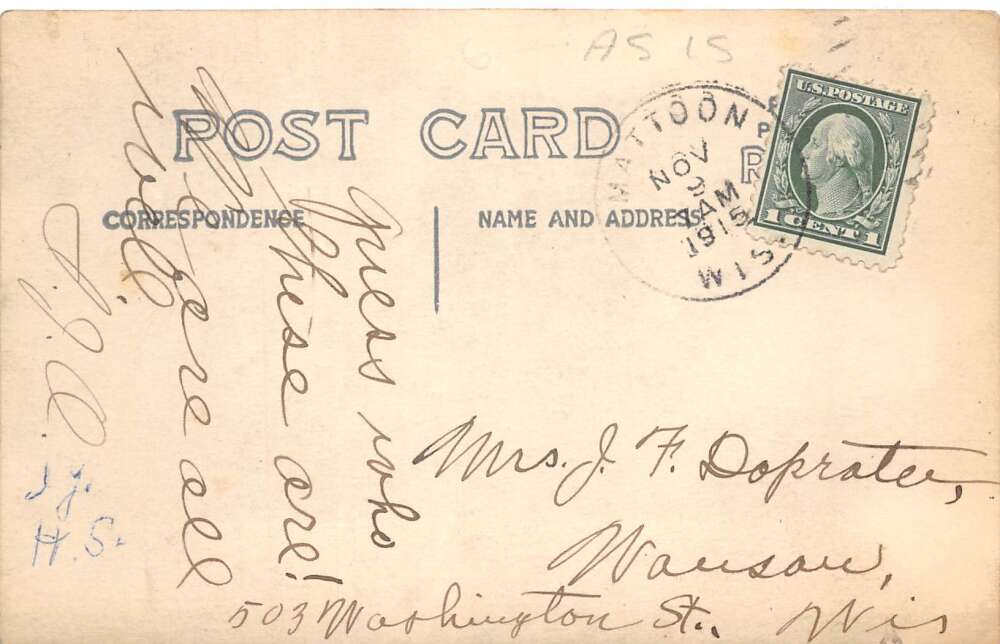 AS IS
POST CARD
CORRESPONDENCE
NAME AND ADDRESS
MATTOON
NOV
9
1 AM
1915
WIS.
U.S. POSTAGE
1 CENT 1
Guess who
these are!
We are all
well
H.S.
Mrs. J. F. Doprater,
Wausau,
503 Washington St., Wis